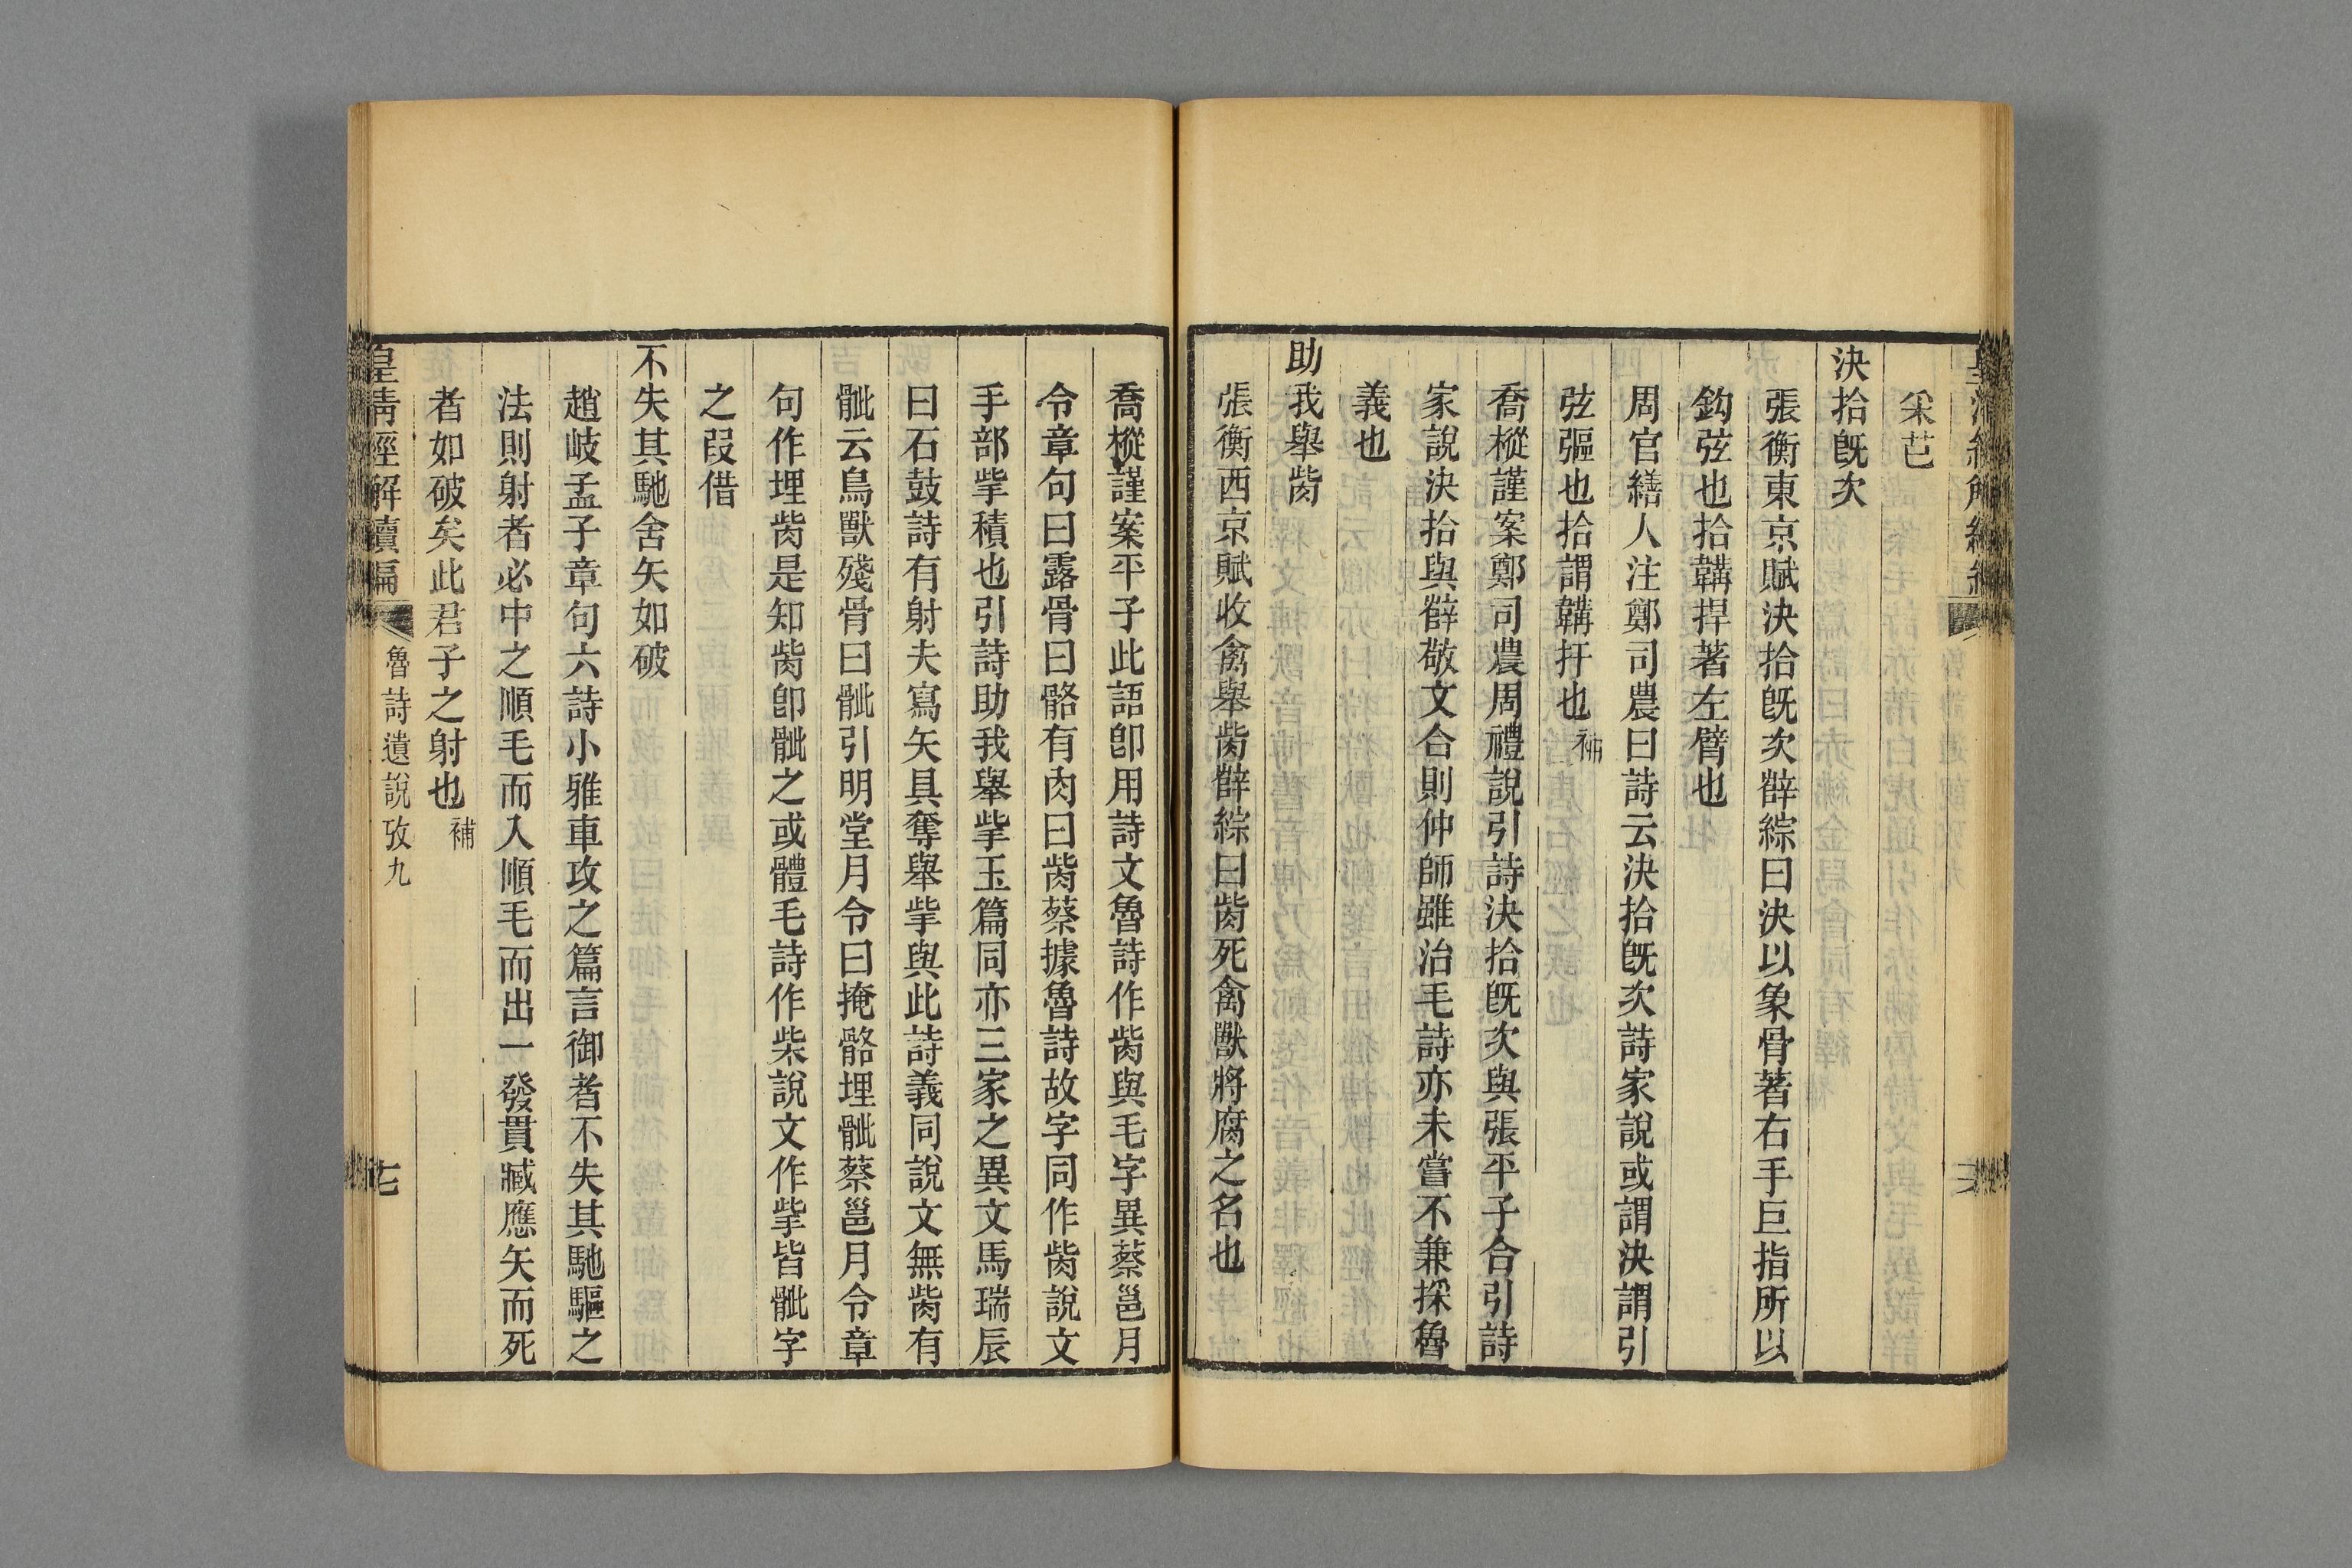 采芑
決拾旣次
張衡東京賦決拾旣次薛綜曰決以象骨著右手巨指所以
鉤弦也拾韝捍著左臂也
周官繕人注鄭司農曰詩云決拾旣次詩家說或謂決謂引
弦彄也拾謂韝扞也補
喬樅謹案鄭司農周禮說引詩決拾旣次與張平子合引詩
家說決拾與薛敬文合則仲師雖治毛詩亦未嘗不兼採魯
義也
助我舉胔
張衡西京賦收禽舉胔薛綜曰胔死禽獸將腐之名也
喬樅謹案平子此語卽用詩文魯詩作胔與毛字異蔡邕月
令章句曰露骨曰骼有肉曰胔蔡據魯詩故字同作胔說文
手部㧘積也引詩助我舉㧘玉篇同亦三家之異文馬瑞辰
曰石鼓詩有射夫寫矢具奪舉㧘與此詩義同說文無胔有
骴云鳥獸殘骨曰骴引明堂月令曰掩骼埋骴蔡邕月令章
句作埋胔是知胔卽骴之或體毛詩作柴說文作㧘皆骴字
之叚借
不失其馳舍矢如破
趙岐孟子章句六詩小雅車攻之篇言御者不失其馳驅之
法則射者必中之順毛而入順毛而出一發貫臧應矢而死
者如破矣此君子之射也補
皇淸經解續編
魯詩遺說攷九
七